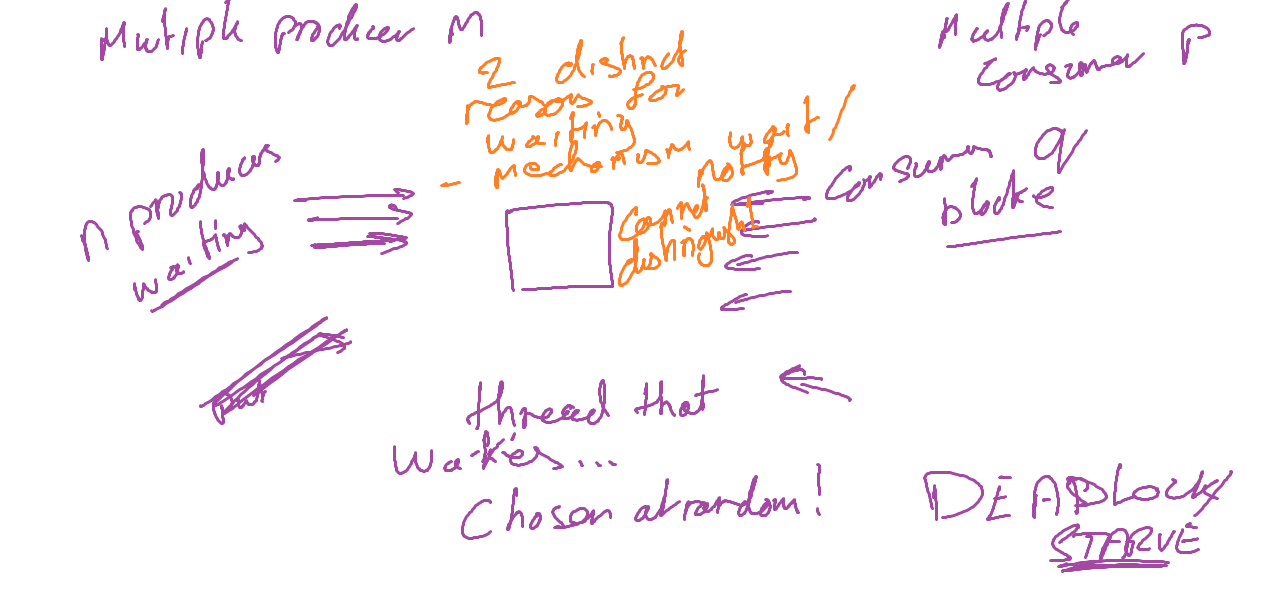 Multiple producer M
Multiple
Consumer P
2 distinct
reasons for
waiting
- mechanism wait/
notify
cannot
distinguish!
n producers
waiting
Consumer q
blocke
thread that
wakes...
Chosen at random!
DEADlock/
STARVE